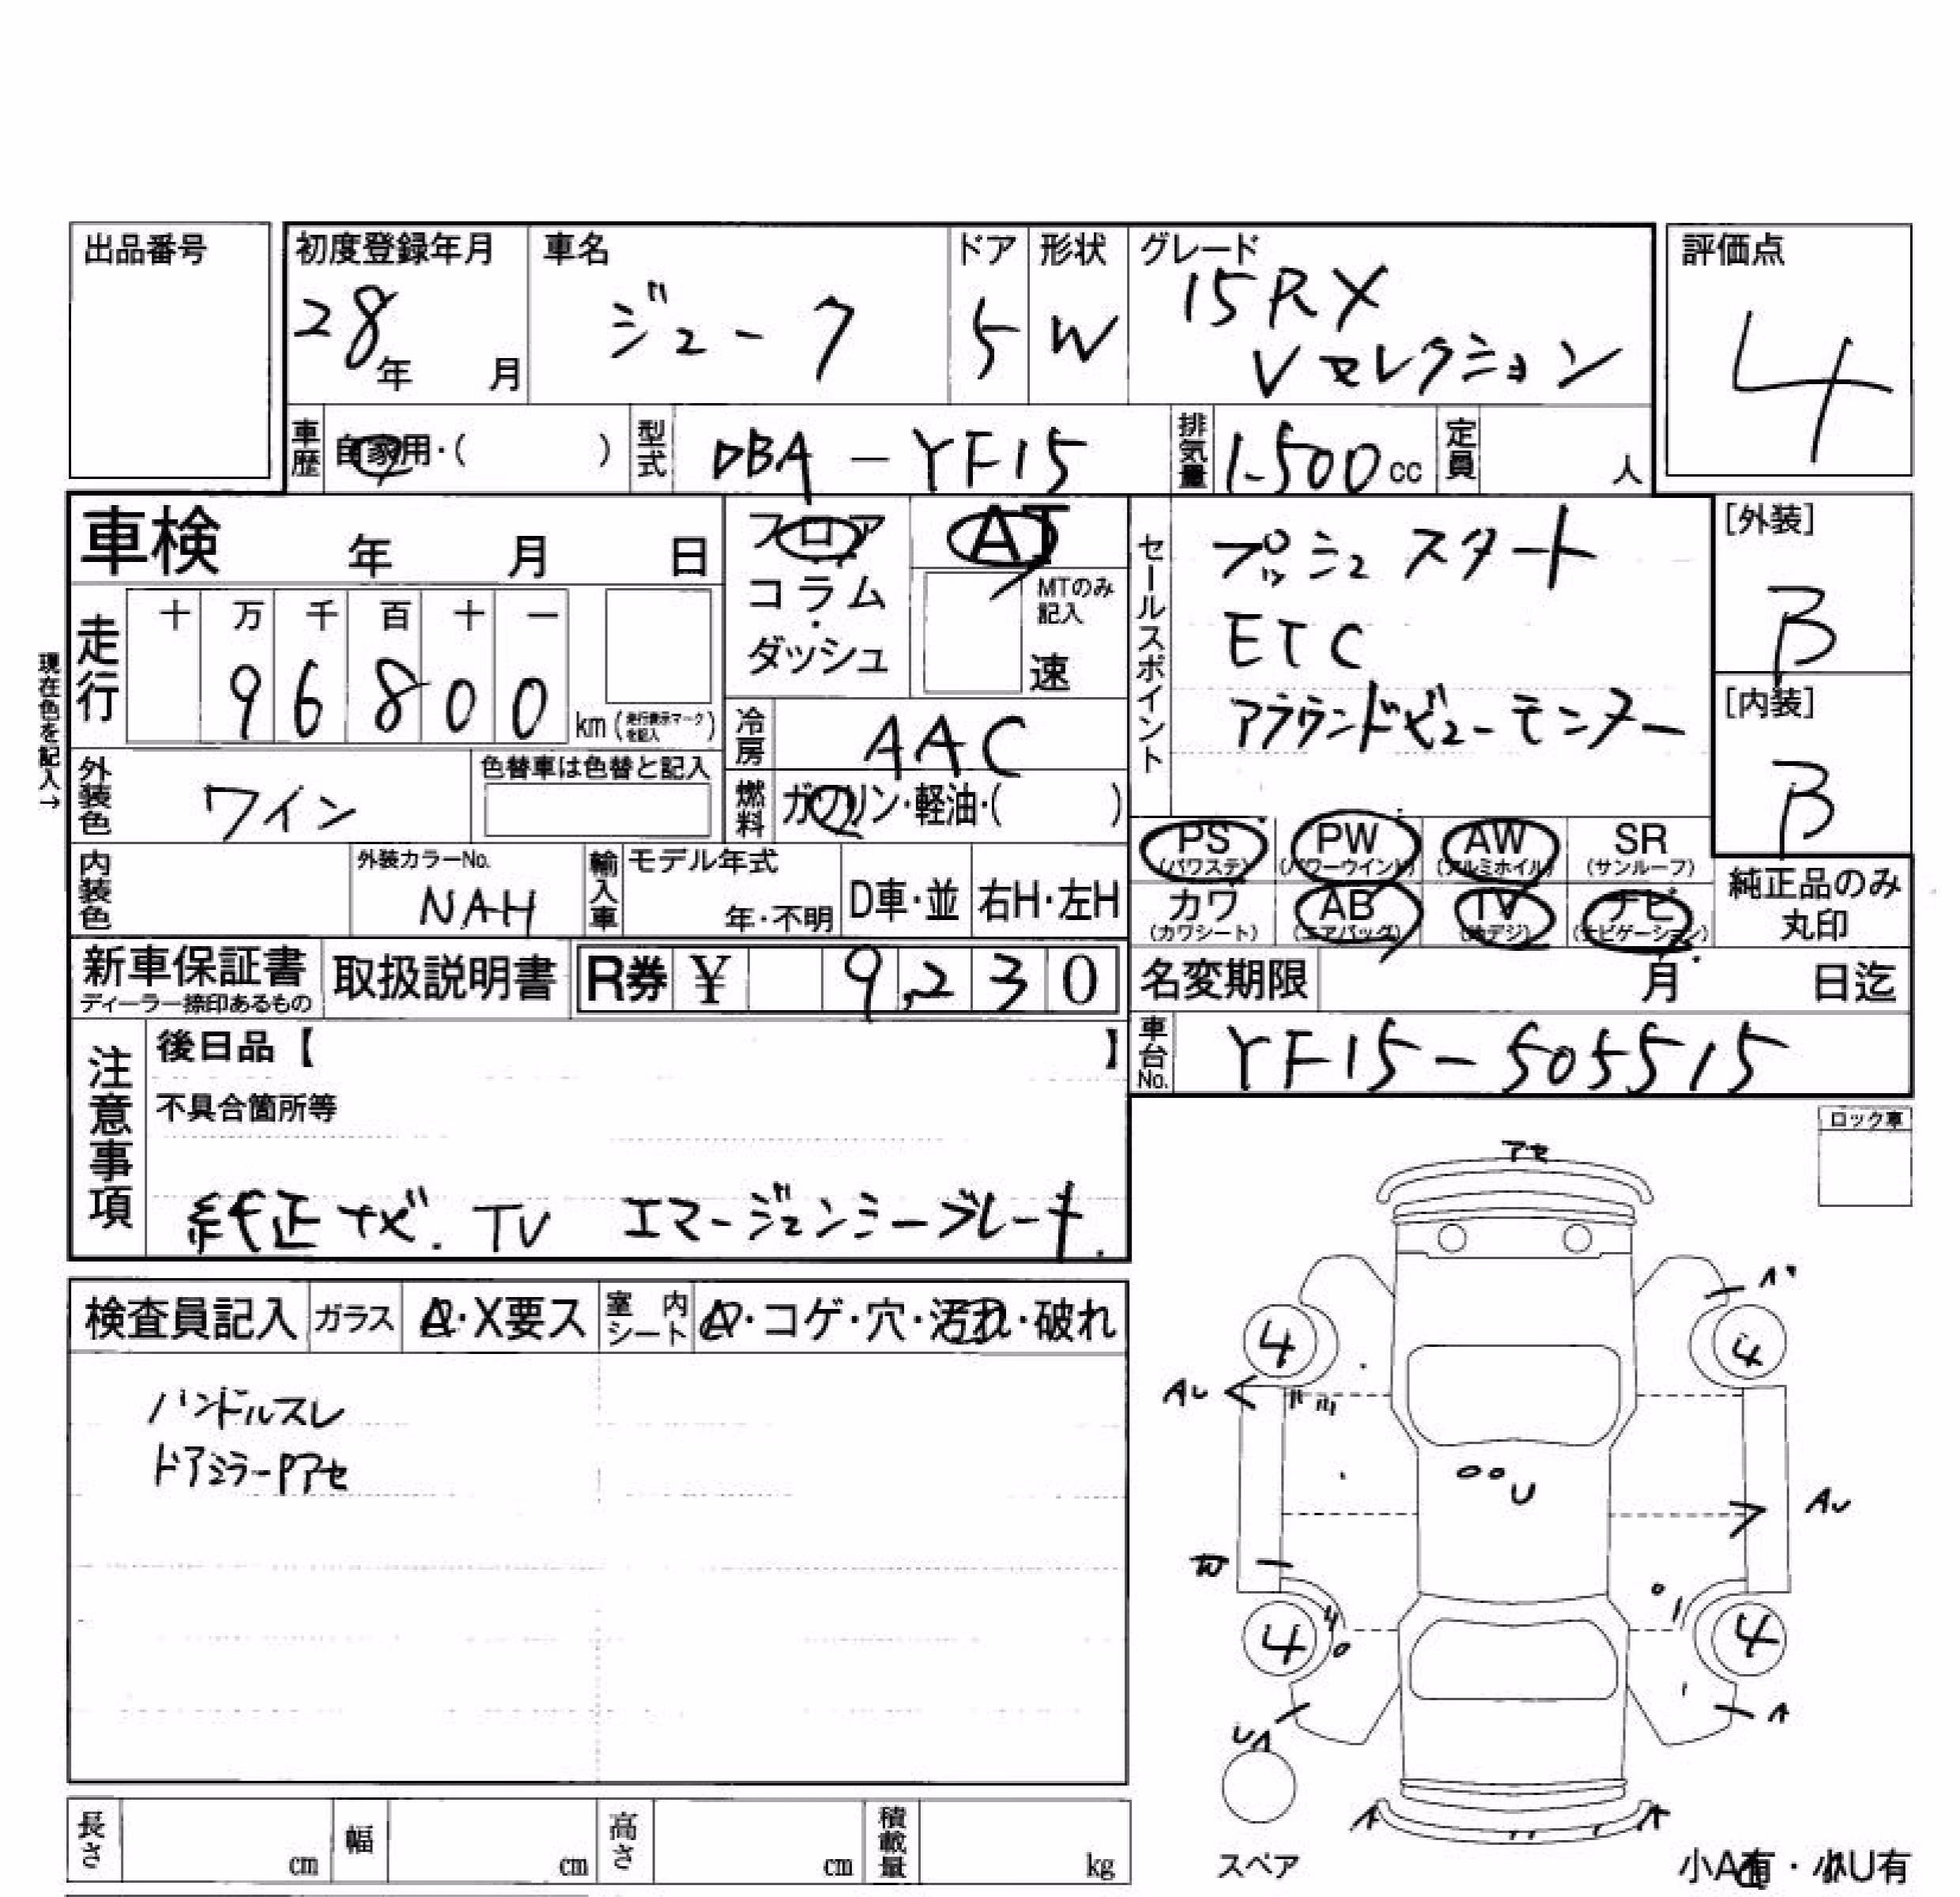 出品番号
初度登録年月
28年 月
車名
ジューク
ドア
5
形状
W
グレード
15RX
Vセレクション
評価点
4
車歴 自家用・( )
型式 DBA-YF15
排気量 1.500cc
定員 人
車検 年 月 日
フロア
コラム
・
ダッシュ
AT
MTのみ
記入
速
セールスポイント
プッシュスタート
ETC
アラウンドビューモニター
[外装]
B
[内装]
B
現在色を記入→
走行
十 万 千 百 十 一
9 6 8 0 0
km (走行表示マークを記入)
冷房 AAC
外装色 ワイン
色替車は色替と記入
燃料 ガソリン・軽油・( )
PS (パワステ)
PW (パワーウインド)
AW (アルミホイル)
SR (サンルーフ)
カワ (カワシート)
AB (エアバッグ)
TV (地デジ)
ナビ (ナビゲーション)
純正品のみ
丸印
内装色
外装カラーNo.
NAH
輸入車
モデル年式
年・不明
D車・並
右H・左H
新車保証書
ディーラー捺印あるもの
取扱説明書
R券 ¥ 9,230
名変期限 月 日迄
車台No. YF15-505515
注意事項
後日品【 】
不具合箇所等
純正ナビ.TV エマージェンシーブレーキ.
ロック車
検査員記入
ガラス A・X要ス
室内シート A・コゲ・穴・汚れ・破れ
ハンドルスレ
ドアミラーPアセ
アセ
4
4
AU
U
AU
W
4
4
UA
A
A
A
スペア
小A有・小U有
長さ cm
幅 cm
高さ cm
積載量 kg